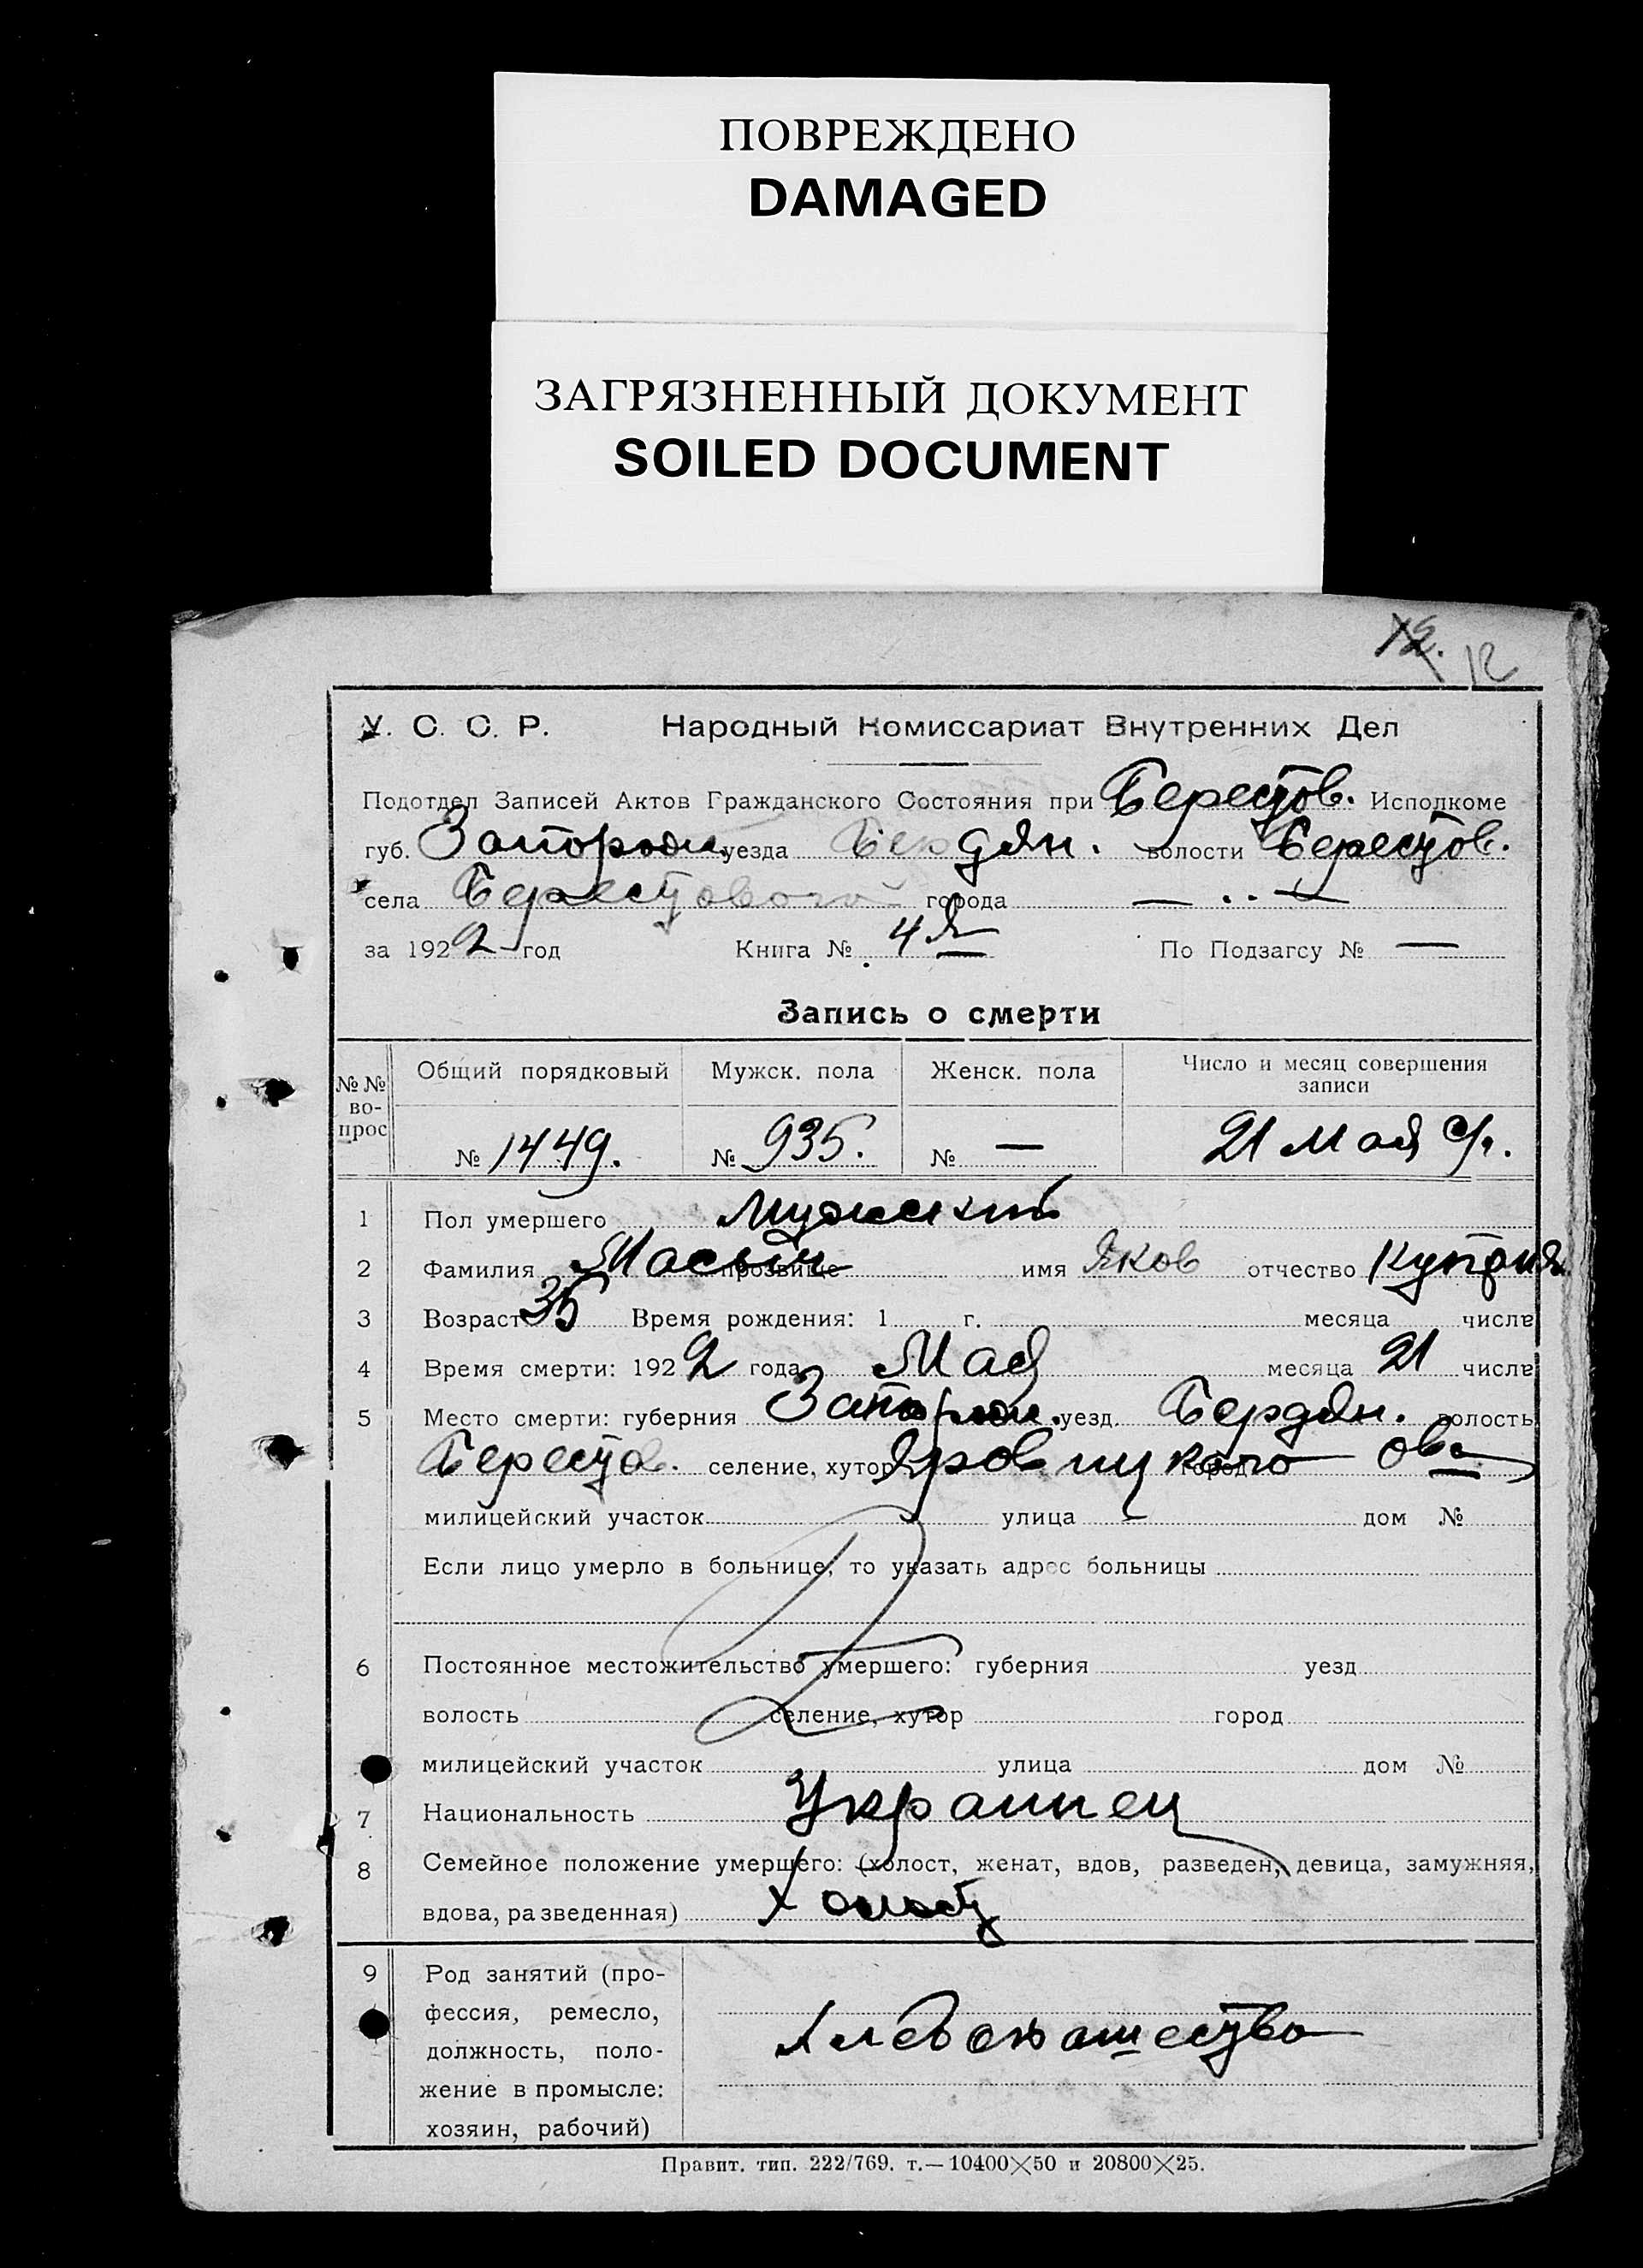 ПОВРЕЖДЕНО
DAMAGED
ЗАГРЯЗНЕННЫЙ ДОКУМЕНТ
SOILED DOCUMENT
12
У. С. С. Р. Народный Комиссариат Внутренних Дел
Подотдел Записей Актов Гражданского Состояния при Берестов. Исполкоме
губ. Запорож. уезда Бердян. волости Берестов.
села Берестового города —
за 1922 год Книга № 4я По Подзагсу № —
Запись о смерти
№№ вопрос Общий порядковый Мужск. пола Женск. пола Число и месяц совершения записи
№ 1449. № 935. № — 21 Мая с/г.
1 Пол умершего Мужской
2 Фамилия прозвище имя Яков отчество Куприя.
3 Возраст 35 Время рождения: 1 г. месяца числа
4 Время смерти: 1922 года Мая месяца 21 числа
5 Место смерти: губерния Запорож. уезд. Бердян. волость
Берестов. селение, хутор город
милицейский участок улица дом №
Если лицо умерло в больнице, то указать адрес больницы
6 Постоянное местожительство умершего: губерния уезд
волость селение, хутор город
милицейский участок улица дом №
7 Национальность Украинец
8 Семейное положение умершего: (холост, женат, вдов, разведен, девица, замужняя,
вдова, разведенная) Холост
9 Род занятий (про-
фессия, ремесло,
должность, поло- Хлебопашество
жение в промысле:
хозяин, рабочий)
Правит. тип. 222/769. т.—10400×50 и 20800×25.